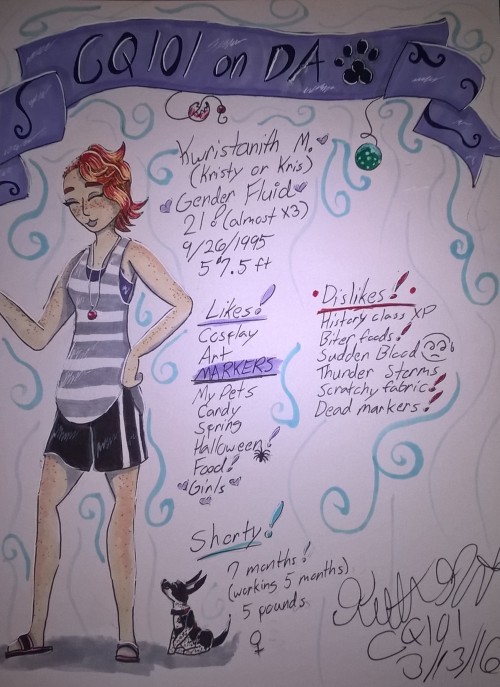 CQ101 on DA
Kwristanith M.
(Kristy or Kris)
Gender Fluid
21! (almost X3)
9/26/1995
5'7.5 ft
Likes!
Cosplay
Art
MARKERS
My Pets
Candy
Spring
Halloween!
Food!
Girls
Dislikes!
History class XP
Biter foods!
Sudden Blood
Thunder Storms
Scratchy fabric!
Dead markers!
Shorty!
7 months!
(working 5 months)
5 pounds
♀
CQ101
3/13/16